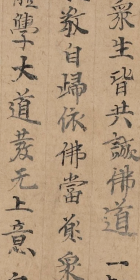 衆生皆共誠佛道一
敬自歸依佛當願衆
學大道發无上意